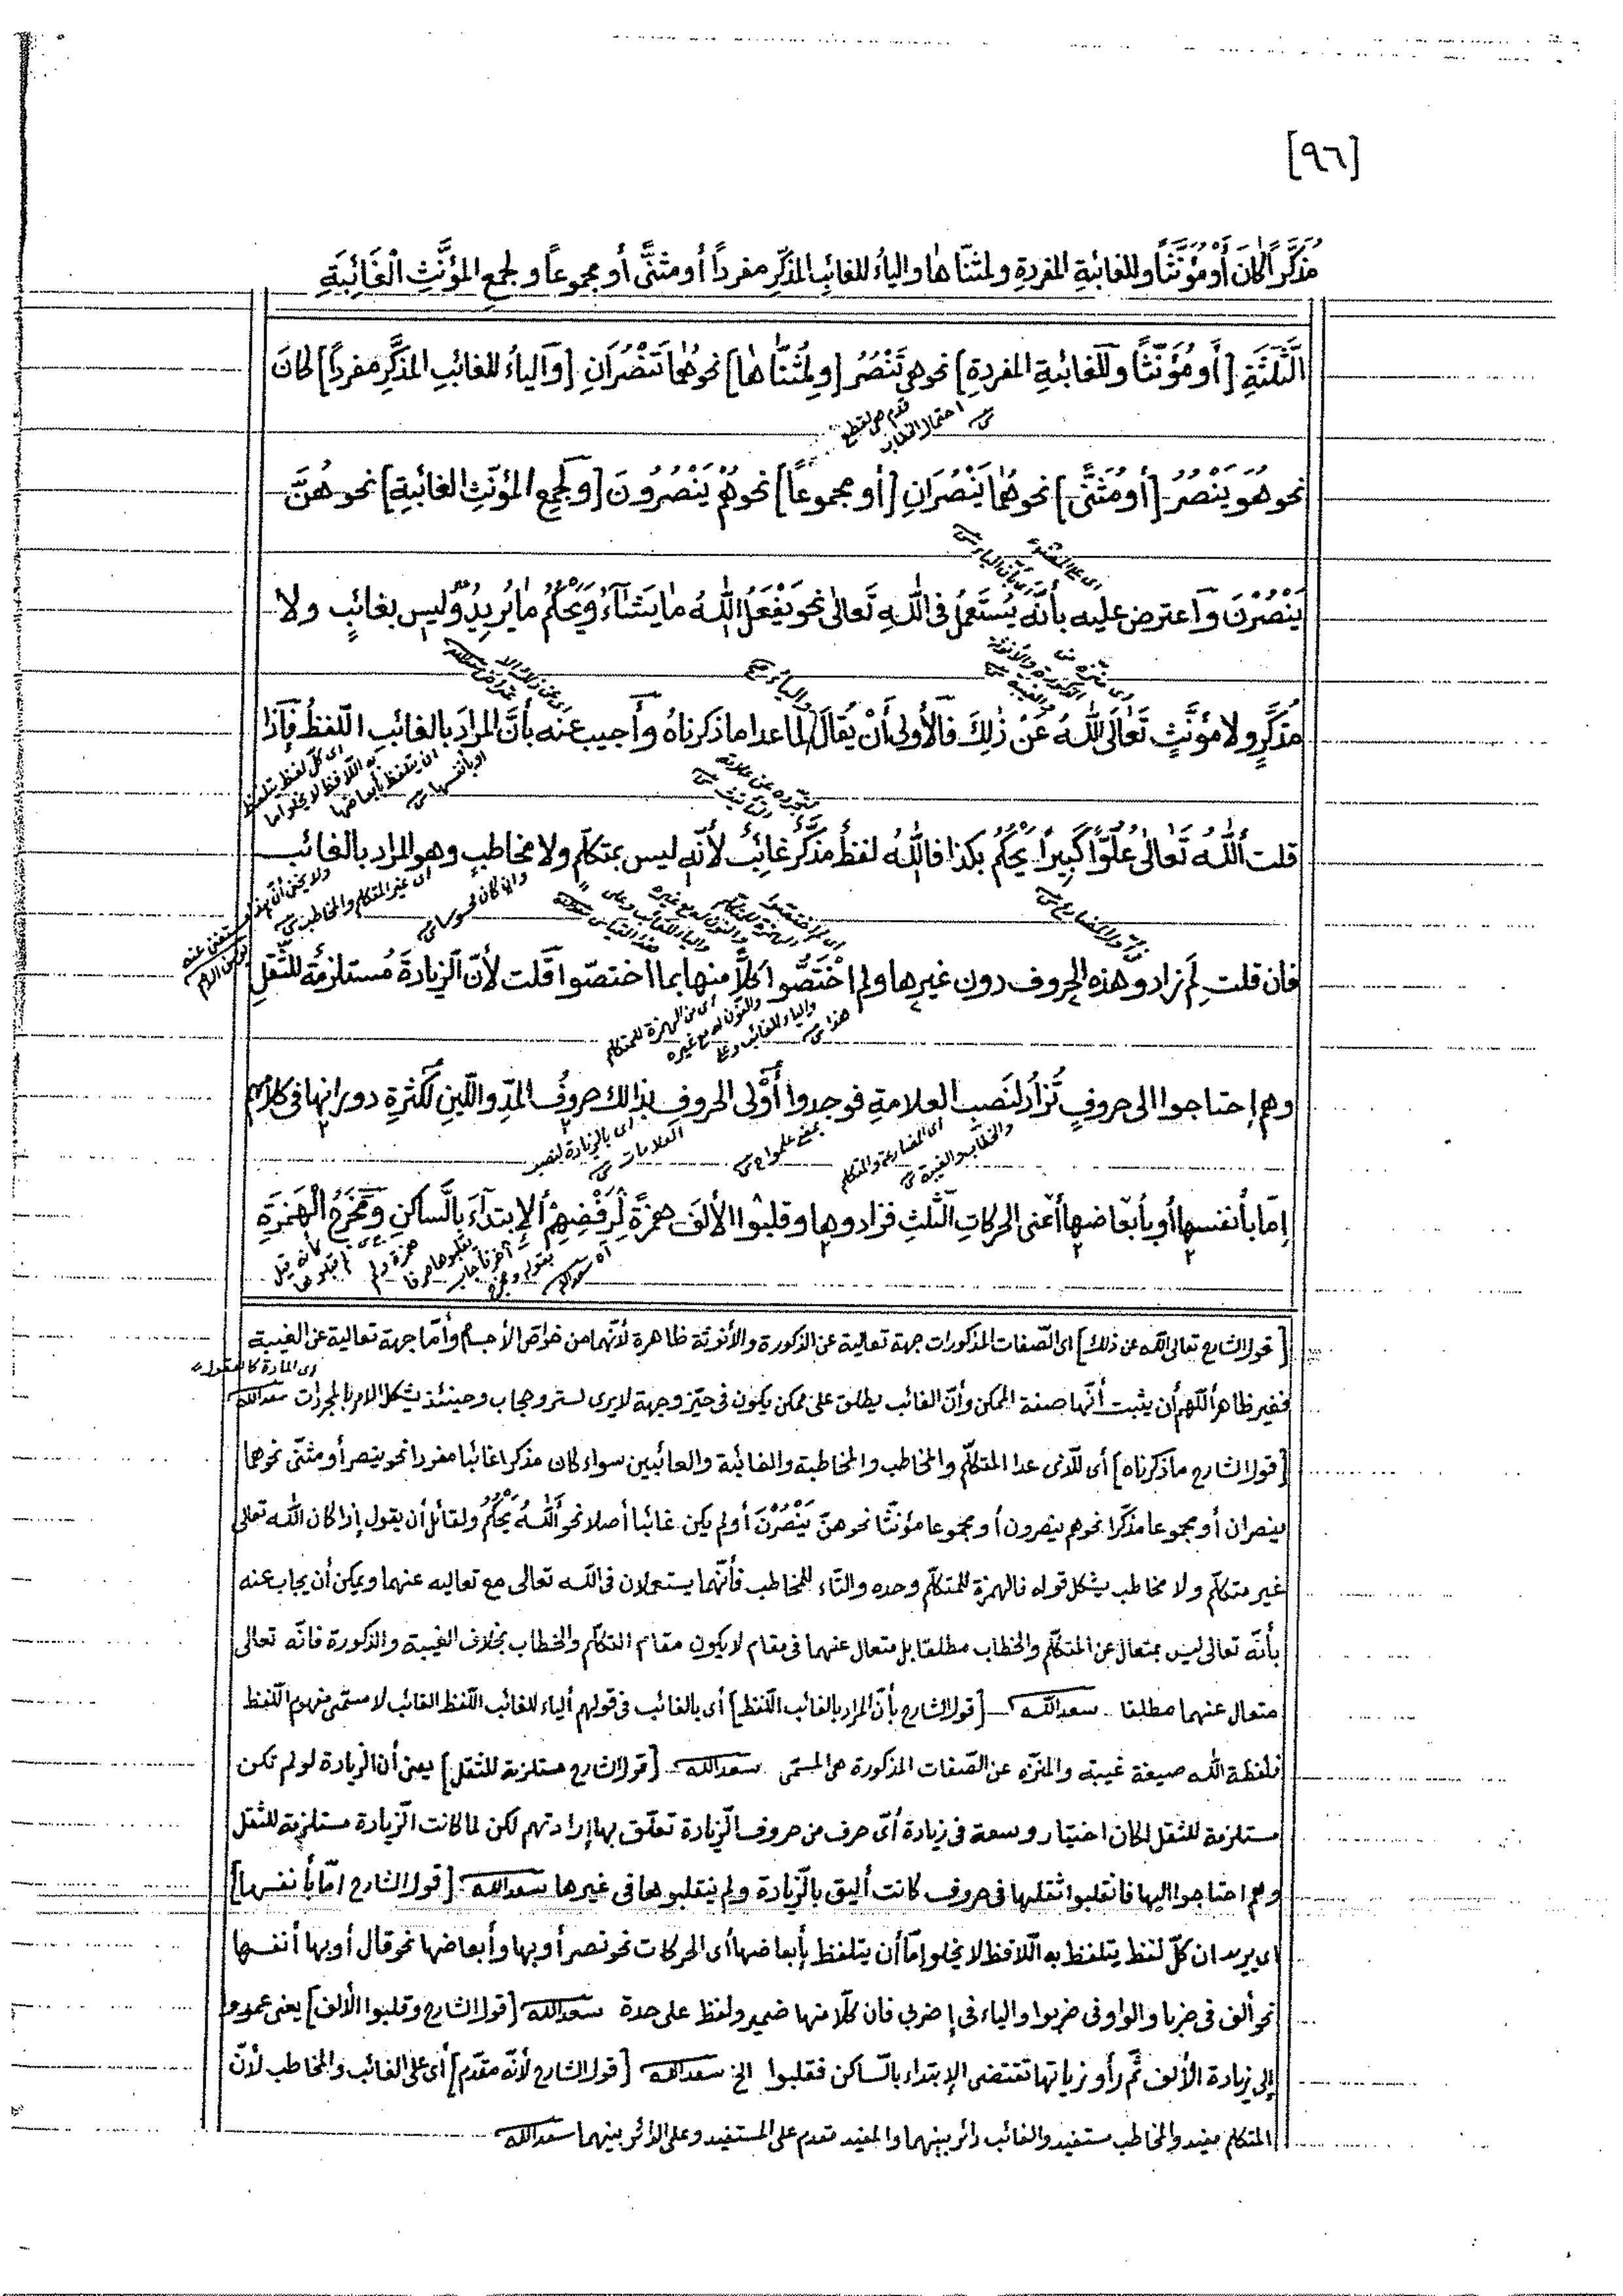 [٩٦]
مُذَكَّراً كَانَ أَوْ مُؤَنَّثاً وللغائبةِ المفردةِ ولمثنّاها والياءُ للغائبِ المذكّرِ مفرداً أو مثنًّى أو مجموعاً ولجمعِ المؤنَّثِ الْغَائِبَةِ
الثَّلٰثَةِ [أَو مُؤَنَّثاً وللغائبةِ المفردة] نحو هى تَنْصُرُ [ولمُثَنّاها] نحوهُمَا تَنْصُرَانِ [والياءُ للغائبِ المذكَّرِ مفرداً] كانَ
قدم هى لقطع
احتمال الخطاب
نحو هُوَ يَنْصُرُ [أو مُثَنًّى] نحو هُمَا يَنْصُرَانِ [أو مجموعاً] نحو هُمْ يَنْصُرُونَ [ولجمعِ المؤنّثِ الغائبةِ] نحو هُنَّ
يَنْصُرْنَ واعترض عليه بأنّه يُسْتَعمَلُ فى اللّٰهِ تَعالىٰ نحو يَفْعَلُ اللّٰهُ مٰا يَشٰآءُ وَيَحْكُمُ مٰا يُرِيدُ وليس بغائبٍ ولا
اى منزه عن
الذكورة والأنوثة
والغيبة
والياءُ
مُذَكَّرٍ ولا مؤنَّثٍ تَعٰالَى اللّٰهُ عَنْ ذٰلِكَ فالأولى أَنْ يُقالَ لما عدا ما ذكرناهُ وأجيب عنه بأنَّ المرادَ بالغائبِ اللّفظُ فإذا
اى كلّ لفظ يتلفظ
به اللافظ لا يخلو اما
ان يتلفظ بأبعاضها
او بأنفسها
قلت أللّٰهُ تَعٰالىٰ عُلُوًّا كَبِيراً يَحْكُمُ بكذا فاللّٰهُ لفظٌ مذَكَّرٌ غائِبٌ لأنّه ليس بمتكلّم ولا مخاطبٍ وهو المراد بالغائب
اى غير المتكلم والمخاطب
وان كان
فان قلت لِمَ زادوهذه الحروف دون غيرها ولم اخْتَصُّوا كلاًّ منها بما اختصّوا قلت لأنّ الزيادةَ مُستلزمةٌ للثّقلِ
اى من الهمزة للمتكلم
والنون له مع غيره
والياء للغائب
وهم إحتاجوا الى حروفٍ تُزادُ لنَصبِ العلامةِ فوجدوا أَوْلى الحروفِ بذالك حروفُ المدّ واللّينِ لكثرةِ دورانها فى كلامهم
اى بالزيادة لنصب
العلامات
بمعنى علموا
اى المضارعة والمتكلم
والخطاب والغيبة
إمّا بأنفسها أو بأبعاضها أعنى الحركاتِ الثّلٰثِ فزادوها وقلبوا الألفَ همزةً لِرَفْضِهِمْ الإبتدآءَ بالسّاكنِ ومَخْرَجُ الْهَمْزَةِ
[قول الشارح تعالى الله عن ذلك] اى الصّفات المذكورات جهة تعاليه عن الذكورة والأنوثة ظاهرة لأنّهما من خواصّ الأجسام وأمّا جهة تعاليه عن الغيبة
فغير ظاهر أللّهم أن يثبت أنّها صفة الممكن وأنّ الغائب يطلق على ممكن يكون فى حيّز وجهة لا يرى لستر وحجاب وحينئذ يشكل الامر بالمجرّدات سعدالله
[قول الشارح ما ذكرناه] أى للّذى عدا المتكلّم والمخاطب والمخاطبة والغائبة والغائبين سواء كان مذكرا غائبا مفردا نحو ينصر أو مثنّى نحو هما
ينصران أو مجموعا مذكّرا نحو هم ينصرون أو مجموعا مؤنّثا نحو هنّ يَنْصُرْنَ أو لم يكن غائبا أصلا نحو أللّٰهُ يَحْكُمُ ولقائل أن يقول إذا كان اللّه تعالى
غير متكلّم ولا مخاطب يشكل قوله فالهمزة للمتكلّم وحده والتّاء للمخاطب فأنّهما يستعملان فى اللّه تعالى مع تعاليه عنهما ويمكن أن يجاب عنه
بأنّه تعالى ليس بمتعال عن المتكلّم والخطاب مطلقا بل متعال عنهما فى مقام لا يكون مقام التكلّم والخطاب بخلاف الغيبة والذكورة فانّه تعالى
متعال عنهما مطلقا سعدالله [قول الشارح بأنّ المراد بالغائب اللّفظ] أى بالغائب فى قولهم ألياء للغائب اللّفظ الغائب لا مسمّى مفهوم اللّفظ
فلفظة اللّه صيغة غيبة والمنزّه عن الصّفات المذكورة هى المسمّى سعدالله [قول الشارح مستلزمة للثّقل] يعنى أن الزيادة لو لم تكن
مستلزمة للثقل لكان اختيار وسعة فى زيادة أىّ حرف من حروف الزّيادة تعلّق بها إرادتهم لكن لما كانت الزّيادة مستلزمة للثّقل
وهم احتاجوا اليها فانقلبوا ثقلها فى حروف كانت أليق بالزّيادة ولم ينقلبوها فى غيرها سعدالله [قول الشارح امّا بأنفسها]
اى يريد ان كلّ لفظ يتلفظ به اللّافظ لا يخلو إمّا أن يتلفظ بأبعاضها أى الحركات نحو نصر أو بها وأبعاضها نحو قال أو بها أنفسها
نحو ألف فى ضربا والواو فى ضربوا والياء فى إضربي فان كلّا منها ضمير ولفظ على حدة سعدالله [قول الشارح وقلبوا الألف] يعنى عمدوا
إلى زيادة الألف ثمّ رأو زيادتها تقتضى الإبتداء بالسّاكن فقلبوا الخ سعدالله [قول الشارح لأنّه مقدّم] أى على الغائب والمخاطب لأنّ
المتكلم مفيد والمخاطب مستفيد والغائب دائر بينهما والمفيد مقدم على المستفيد وعلى الدائر بينهما سعدالله